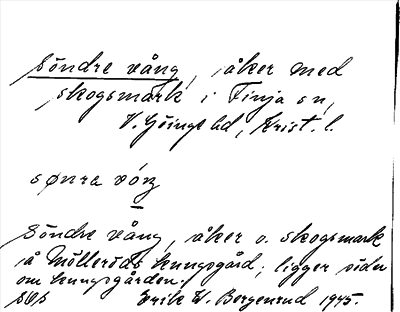 Söndre vång, åker med
skogsmark i Finja sn,
V. Göinge hd, Krist. l.
sønra våŋ
Söndre vång, åker o. skogsmark
å Mölleröds kungsgård; ligger söder
om kungsgården.
Erik W. Bergenrud 1945.